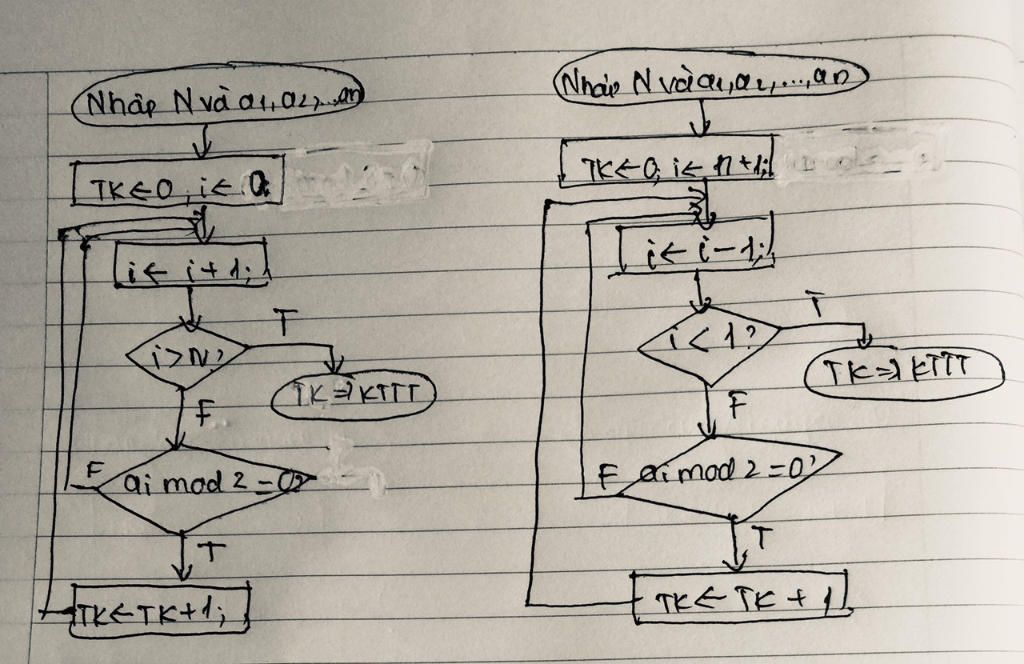 Nhập N và a1, a2, ..., an
TK ← 0, i ← 0;
i ← i + 1;
i > N?
T
TK ⇒ KTTT
F
ai mod 2 = 0?
F
T
TK ← TK + 1;
Nhập N và a1, a2, ..., an
TK ← 0; i ← n + 1;
i ← i - 1;
i < 1?
T
TK ⇒ KTTT
F
ai mod 2 = 0?
F
T
TK ← TK + 1